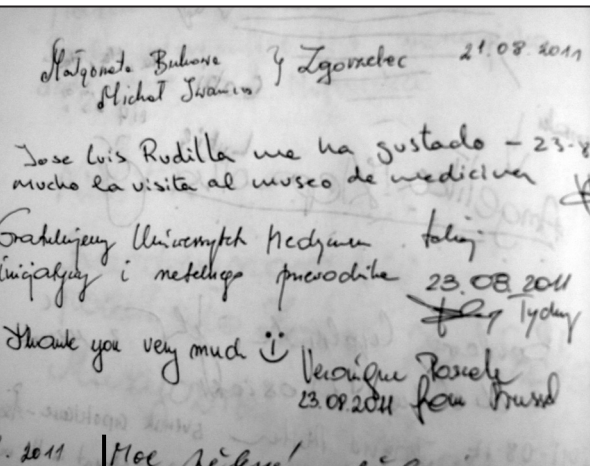 Małgorzata Bukowa } Zgorzelec 21.08.2011
Michał Iwanicz
Jose Luis Rudilla me ha gustado - 23-8
mucho la visita al museo de medicina
Gratulujemy Uniwersytetu Medycznemu takiej
inicjatywy i rzetelnego przewodnika 23.08.2011
Tychy
Thank you very much
Veronique
23.08.2011 from Brussel
. 2011 Moc